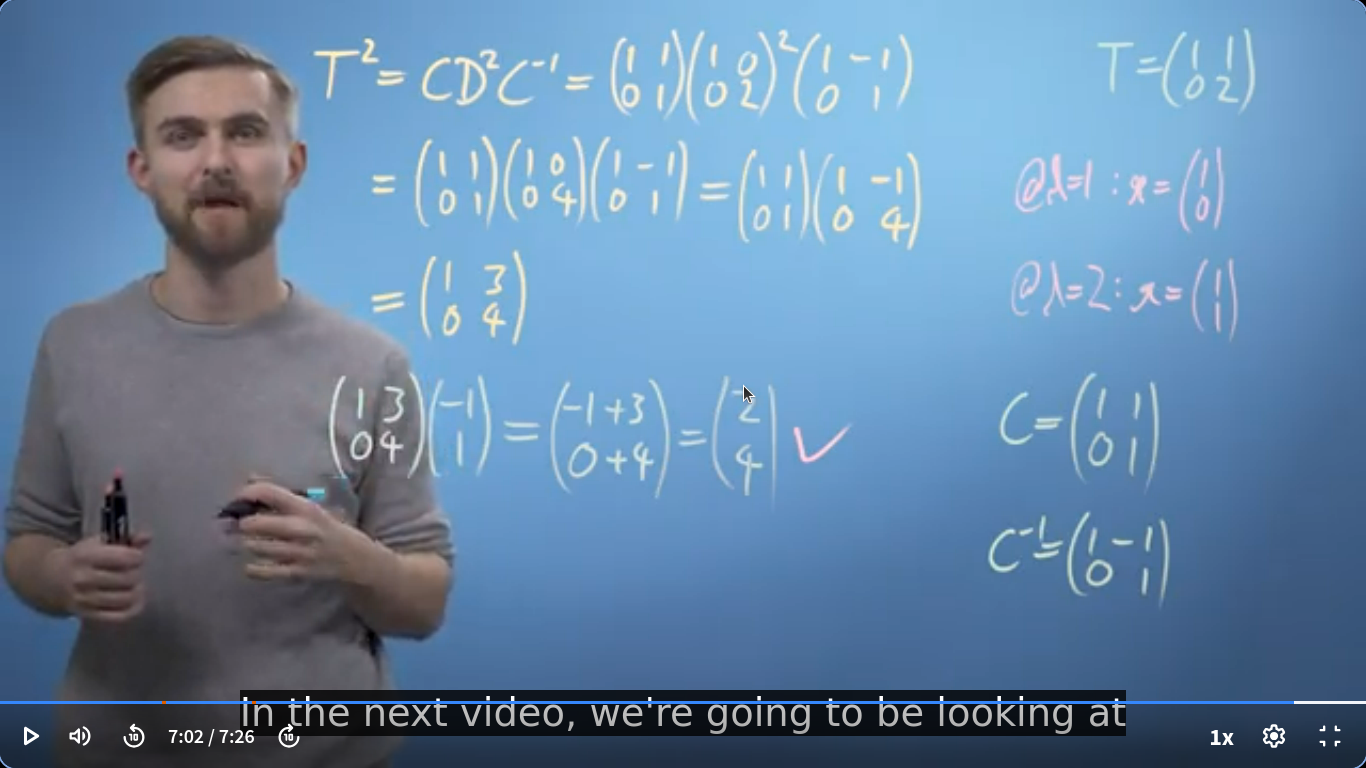 T² = CD²C⁻¹ = (1 1; 0 1)(1 0; 0 2)²(1 -1; 0 1)
= (1 1; 0 1)(1 0; 0 4)(1 -1; 0 1) = (1 1; 0 1)(1 -1; 0 4)
= (1 3; 0 4)
(1 3; 0 4)(-1; 1) = (-1+3; 0+4) = (2; 4) ✓
T = (1 1; 0 2)
@λ=1 : x = (1; 0)
@λ=2 : x = (1; 1)
C = (1 1; 0 1)
C⁻¹ = (1 -1; 0 1)
In the next video, we're going to be looking at
10
7:02 / 7:26
10
1x